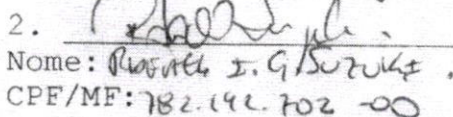 2.
Nome: I. G. SUZUKI.
CPF/MF: 782.142.702-00